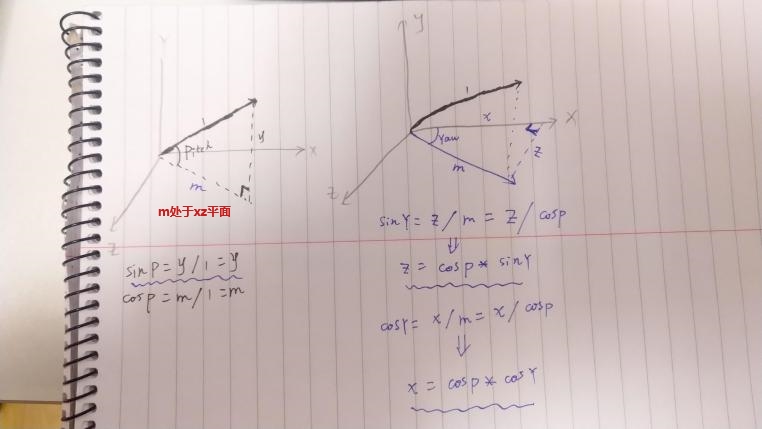 Y
1
Pitch
y
X
m
m处于xz平面
Z
sinp = y / 1 = y
cosp = m / 1 = m
y
1
x
X
Yaw
z
m
Z
sinY = z / m = z / cosp
⇓
z = cosp * sinY
cosY = x / m = x / cosp
⇓
x = cosp * cosY